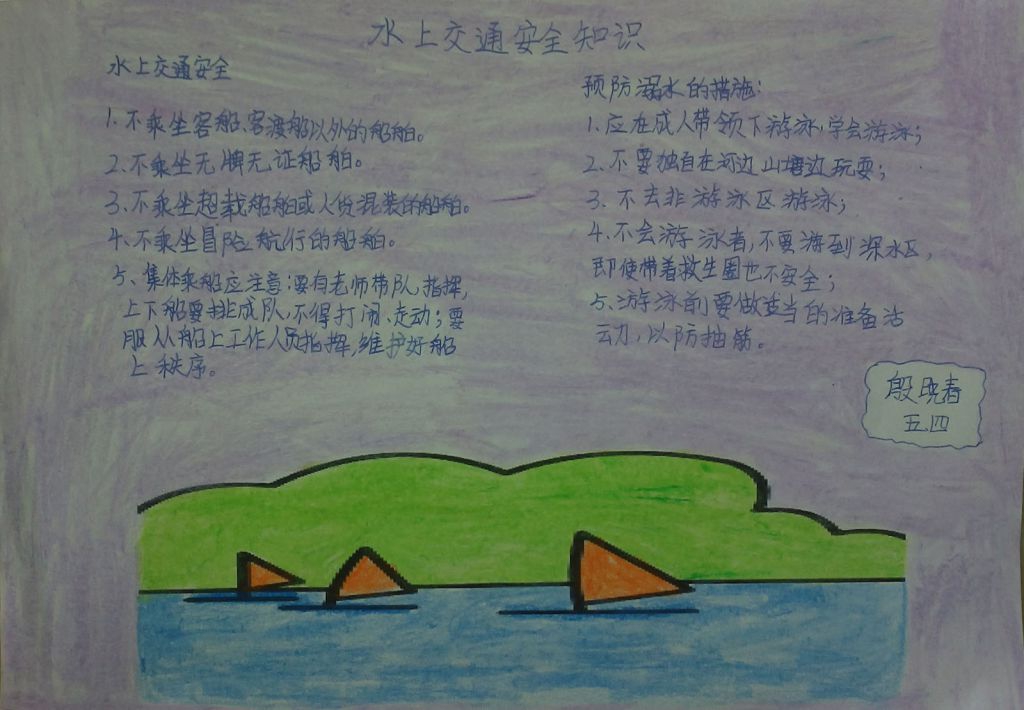 水上交通安全知识
水上交通安全
1. 不乘坐客船、客渡船以外的船舶。
2. 不乘坐无牌无证船舶。
3、不乘坐超载船舶或人货混装的船舶。
4、不乘坐冒险航行的船舶。
5、集体乘船应注意：要有老师带队、指挥，
上下船要排成队、不得打闹、走动；要
服从船上工作人员指挥，维护好船
上秩序。
预防溺水的措施：
1、应在成人带领下游泳，学会游泳；
2、不要独自在河边山塘边玩耍；
3. 不去非游泳区游泳；
4、不会游泳者，不要游到深水区，
即使带着救生圈也不安全；
5、游泳前要做适当的准备活
动，以防抽筋。
殷晓春
五.四